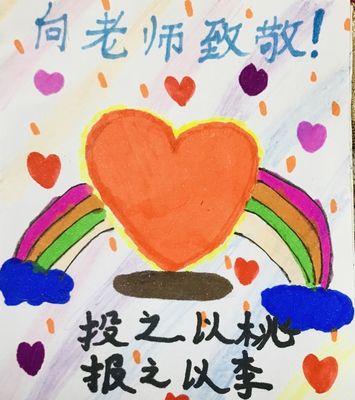 向老师致敬!
投之以桃
报之以李